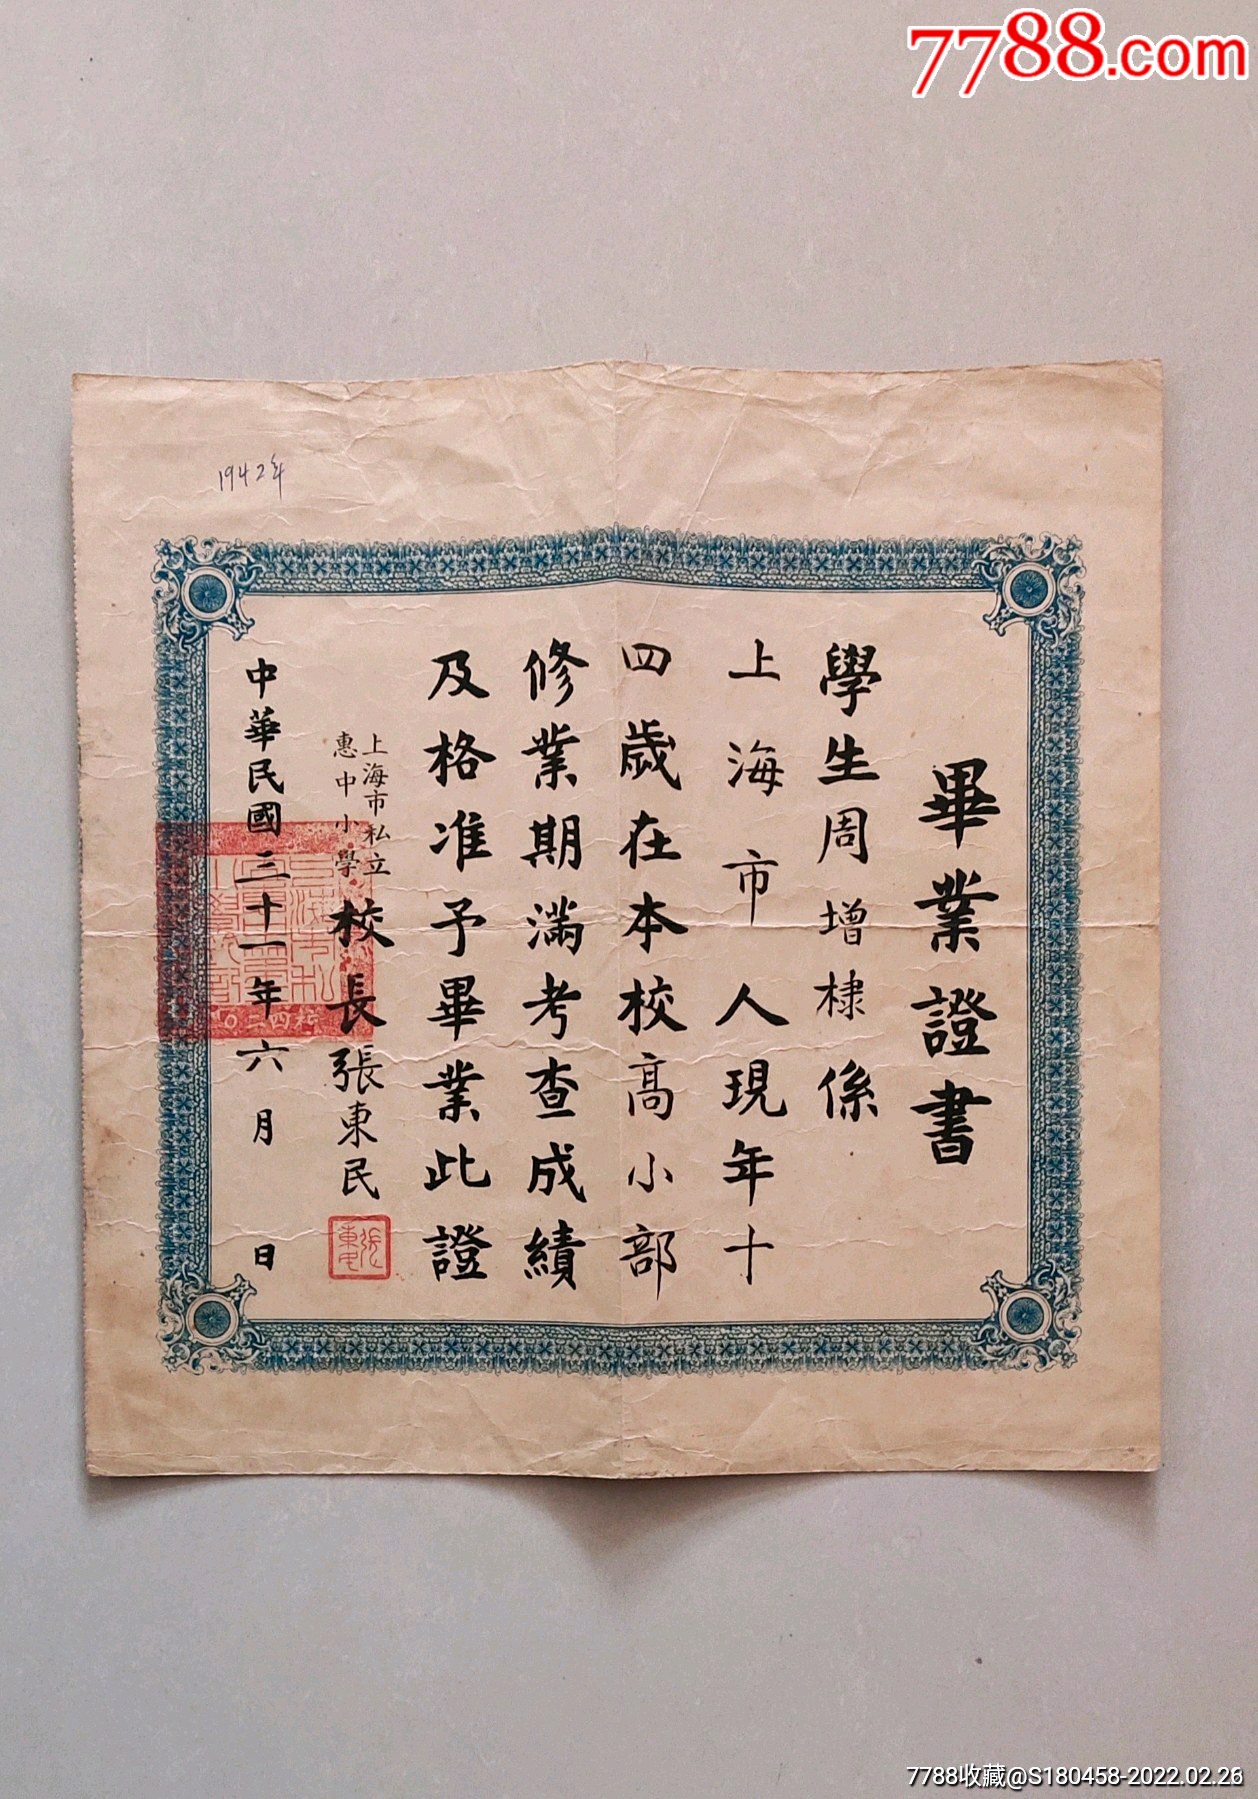 7788.com
1942年
畢業證書
學生周增棣係
上海市人現年十
四歲在本校高小部
修業期滿考查成績
及格准予畢業此證
上海市私立
惠中小學
校長張東民
張東民
中華民國三十一年六月 日
7788收藏@S180458-2022.02.26